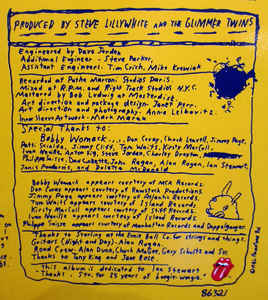 PRODUCED BY STEVE LILLYWHITE AND THE GLIMMER TWINS
Engineered by Dave Jerden
Additional Engineer - Steve Parker,
Assistant Engineers, Tim Crich, Mike Krowiak
Recorded at Pathe Marconi Studios Paris.
Mixed at R.P.M. and Right Track Studios N.Y.C.
Mastered by Bob Ludwig at Masterdisk
Art direction and package design - Janet Perr.
Art direction and photography. Annie Leibovitz.
Inner Sleeve Artwork - Mark Marek
Special Thanks to:
Bobby Womack... Don Covay, Chuck Leavell, Jimmy Page,
Patti Scialfa, Jimmy Cliff, Tom Waits, Kirsty MacColl
Ivan Neville, Anton Fig, Steve Jordan, Charley Drayton,
Philippe Saisse, Dan Collette, John Regan, Alan Rogan, Ian Stewart,
Janice Pendarvis, and Dollette McDonald
Bobby Womack appears courtesy of MCA Records.
Don Covay appears courtesy of Productions
Jimmy Page appears courtesy of Atlantic Records.
Tom Waits appears courtesy of Island Records.
Kirsty MacColl appears courtesy of Stiff Records.
Ivan Neville appears courtesy of Records.
Philippe Saisse appears courtesy of Manhattan Records and
Thanks to Sterling at the Ernie Ball Co. for strings and things.
Guitars (Night and Day). Alan Rogan.
Road Crew. Alan Dunn, Chuck Magee, Gary Schultz and
Thanks to Tony King and Jane Rose.
This album is dedicated to Ian Stewart
Thanks, Stu, for 25 years of boogie-woogie.
86321